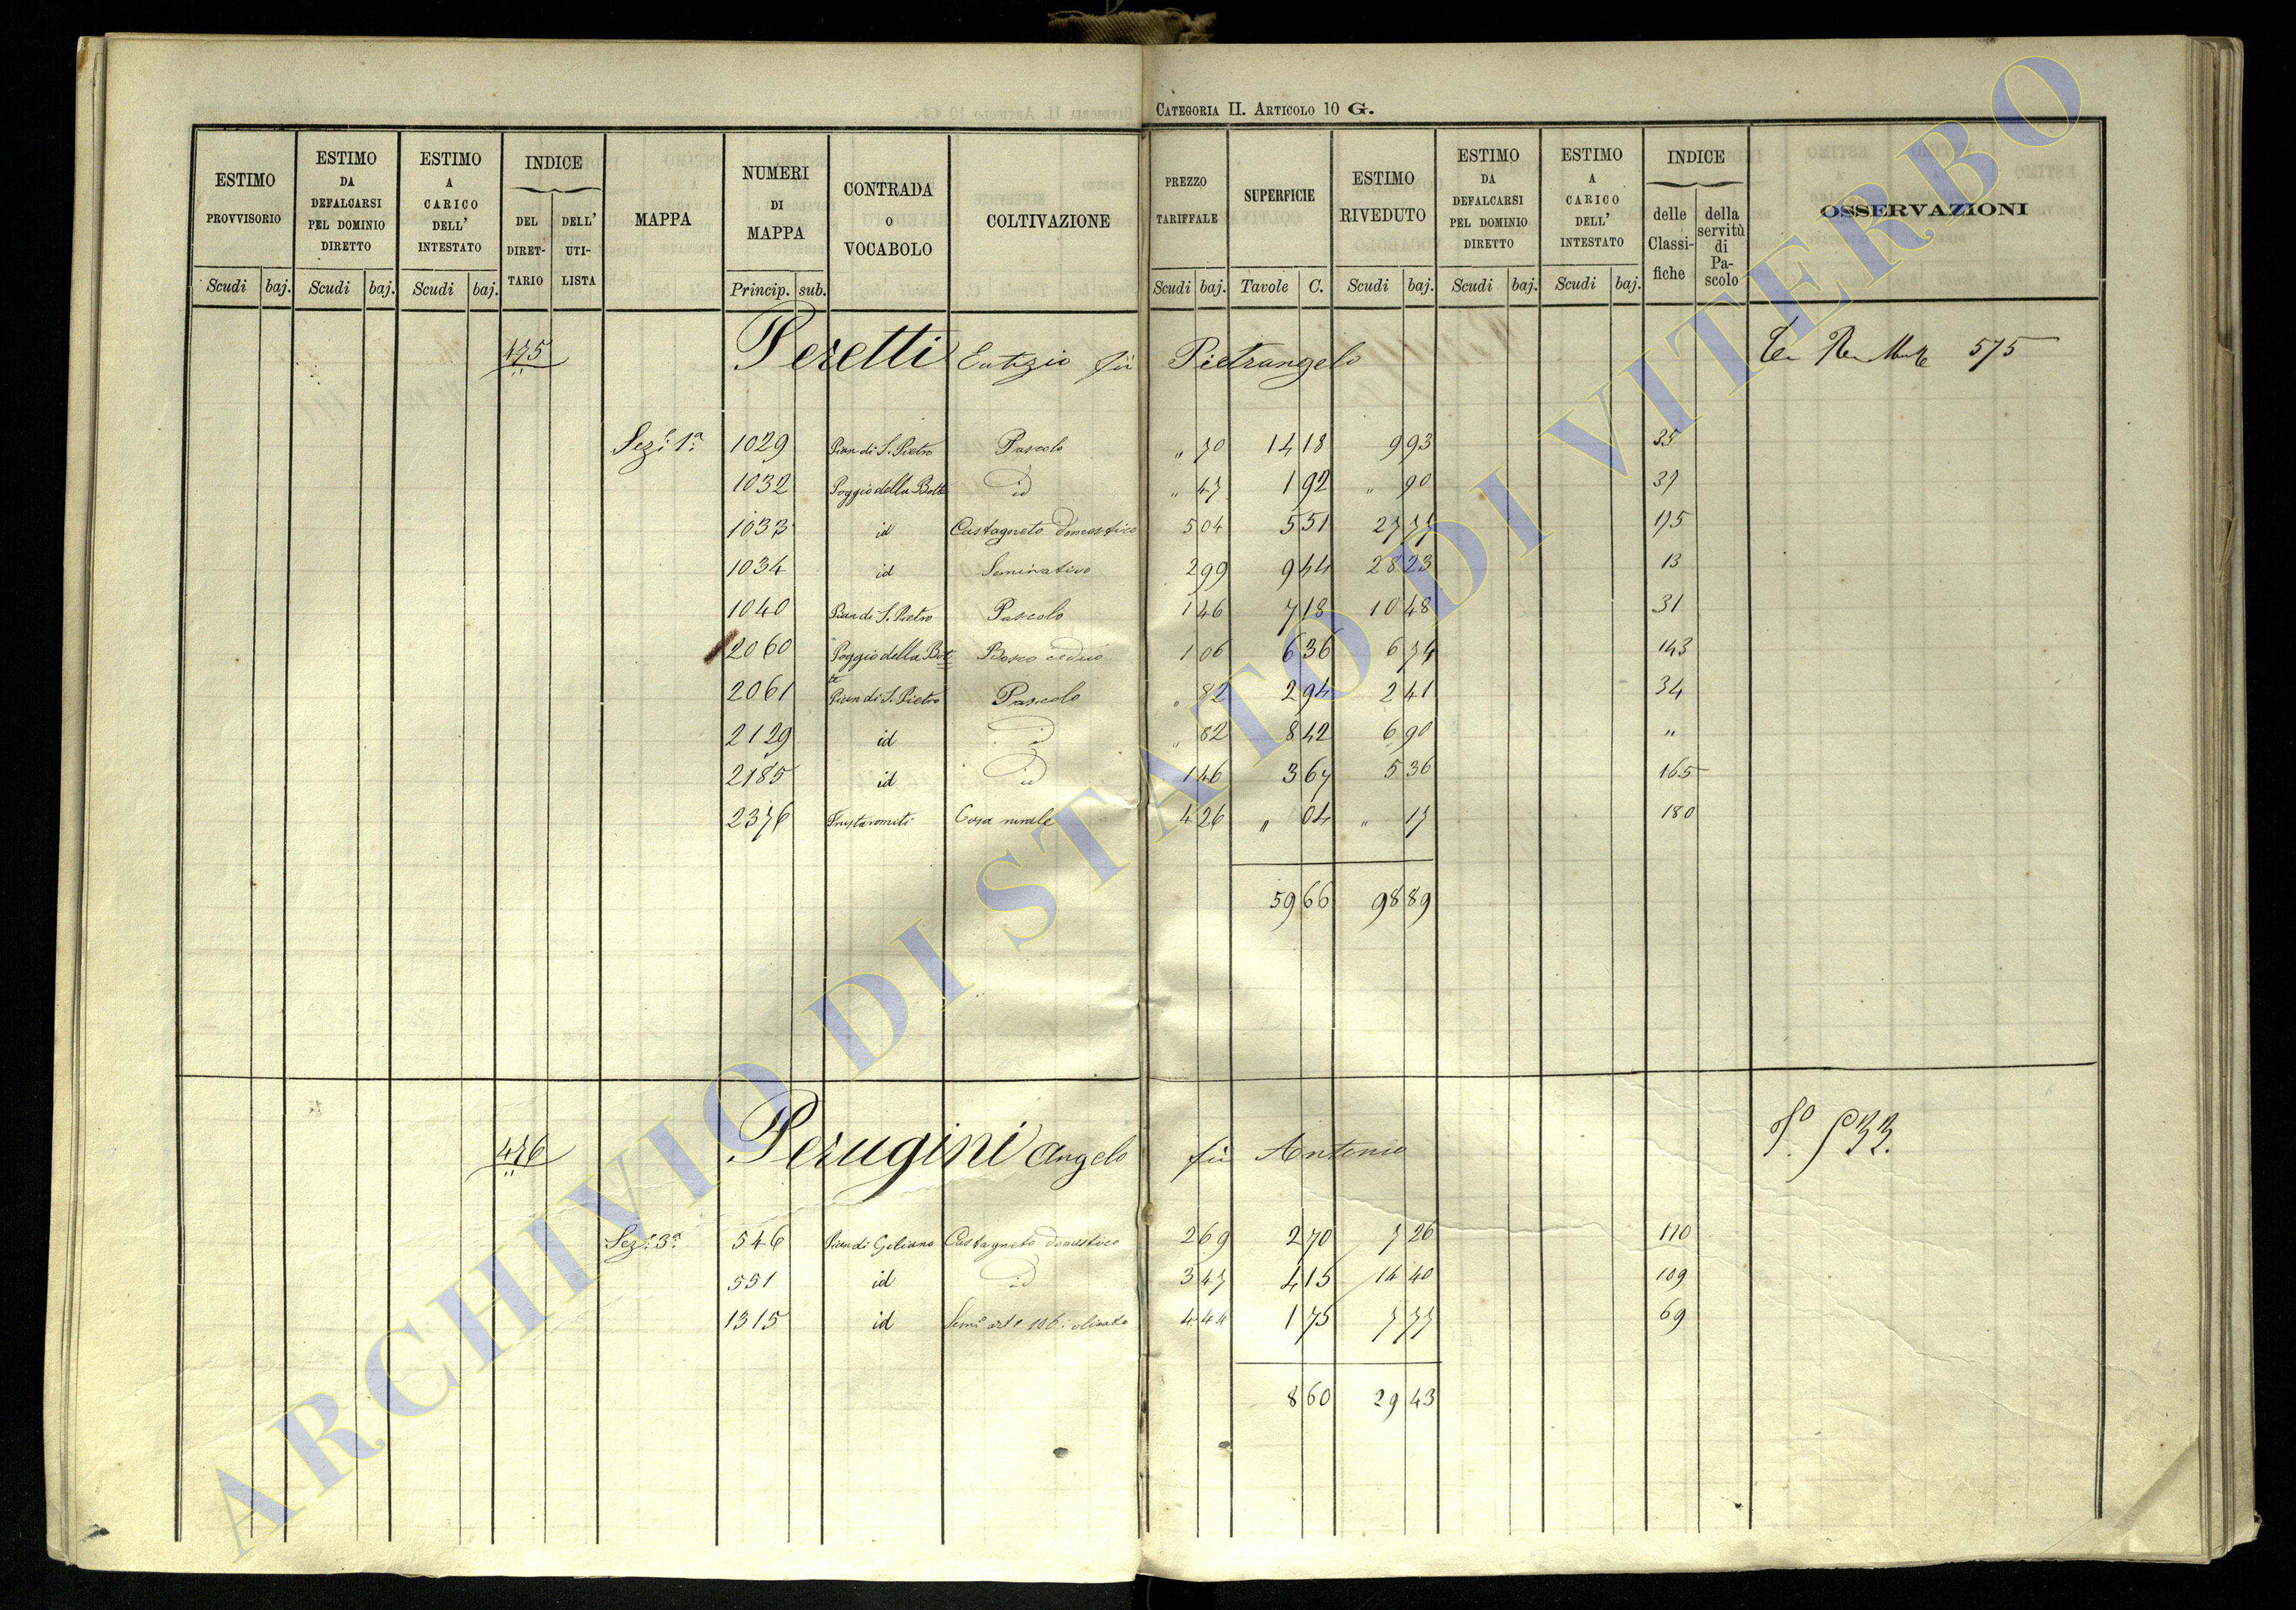 CATEGORIA II. ARTICOLO 10 G.
ESTIMO PROVVISORIO Scudi baj.
ESTIMO DA DEFALCARSI PEL DOMINIO DIRETTO Scudi baj.
ESTIMO A CARICO DELL' INTESTATO Scudi baj.
INDICE DEL DIRETTARIO DELL' UTILISTA
MAPPA
NUMERI DI MAPPA Princip. sub.
CONTRADA O VOCABOLO
COLTIVAZIONE
PREZZO TARIFFALE Scudi baj.
SUPERFICIE Tavole C.
ESTIMO RIVEDUTO Scudi baj.
ESTIMO DA DEFALCARSI PEL DOMINIO DIRETTO Scudi baj.
ESTIMO A CARICO DELL' INTESTATO Scudi baj.
INDICE delle Classifiche della servitù di Pascolo
OSSERVAZIONI
475 Peretti Eutizio fù Pietrangelo 575
Sez.e 1a 1029 Pian di S. Pietro Pascolo " 70 14 18 9 93 35
1032 Poggio della Botte id " 47 1 92 " 90 37
1033 id Castagneto domestico 5 04 5 51 27 77 175
1034 id Seminativo 2 99 9 44 28 23 13
1040 Pian di S. Pietro Pascolo 1 46 7 18 10 48 31
2060 Poggio della Botte Bosco ceduo 1 06 6 36 6 74 143
2061 Pian di S. Pietro Pascolo " 82 2 94 2 41 34
2129 id id " 82 8 42 6 90 "
2185 id id 1 46 3 67 5 36 165
2376 Casa rurale 4 26 " 04 " 17 180
59 66 98 89
476 Perugini Angelo fù Antonio
Sez.e 3a 546 Pian di Giliano Castagneto domestico 2 69 2 70 7 26 110
551 id id 3 47 4 15 14 40 109
1315 id 4 44 1 75 7 77 69
8 60 29 43
ARCHIVIO DI STATO DI VITERBO